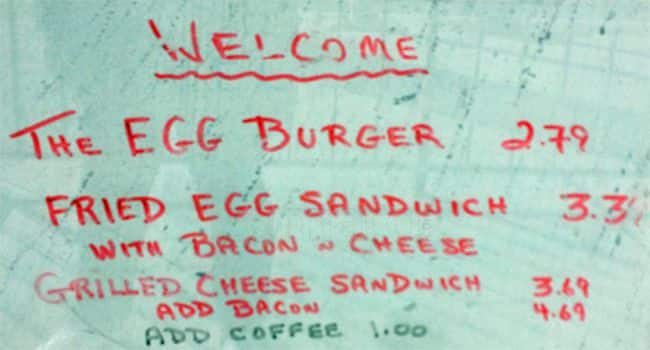 WELCOME
THE EGG BURGER 2.79
FRIED EGG SANDWICH
WITH BACON N CHEESE
GRILLED CHEESE SANDWICH 3.69
ADD BACON 4.69
ADD COFFEE 1.00